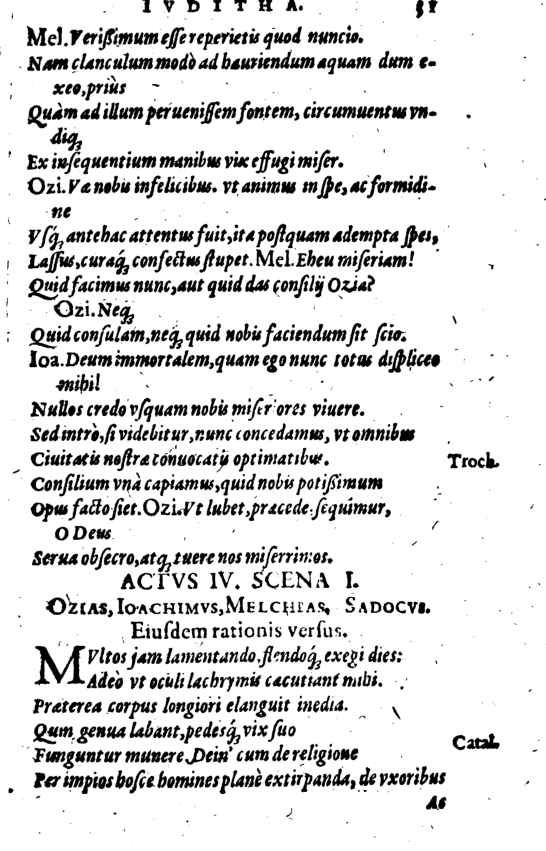 IVDITHA. 51
Mel. Verißimum eſſe reperietis quod nuncio.
Nam clanculum modò ad hauriendum aquam dum e-
xeo, priùs
Quàm ad illum perueniſſem fontem, circumuentus vn-
diq́;
Ex inſequentium manibus vix effugi miſer.
Ozi. Væ nobis infelicibus. vt animus in ſpe, ac formidi-
ne
Vſq́; antehac attentus fuit, ita poſtquam adempta ſpes,
Laſſus, curaq́; confectus ſtupet. Mel. Eheu miſeriam!
Quid facimus nunc, aut quid das conſilij Ozia?
Ozi. Neq́;
Quid conſulam, neq́; quid nobis faciendum ſit ſcio.
Ioa. Deum immortalem, quam ego nunc totus diſpliceo
mihi!
Nullos credo vſquam nobis miſeriores viuere.
Sed intrò, ſi videbitur, nunc concedamus, vt omnibus
Ciuitatis noſtræ conuocatis optimatibus.
Troch.
Conſilium vnà capiamus, quid nobis potißimum
Opus facto ſiet. Ozi. Vt lubet, præcede. ſequimur,
O Deus
Serua obſecro, atq́; tuere nos miſerrimos.
ACTVS IV. SCENA I.
OZIAS, IOACHIMVS, MELCHIAS, SADOCVS.
Eiuſdem rationis verſus.
MVltos jam lamentando, flendoq́; exegi dies:
Adeò vt oculi lachrymis cæcutiant mihi.
Præterea corpus longiori elanguit inedia.
Qum genua labant, pedesq́; vix ſuo
Funguntur munere. Dein' cum de religione
Catal.
Per impios hoſce homines planè extirpanda, de vxoribus
Ac